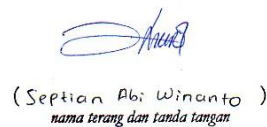 (Septian Abi Winanto)
nama terang dan tanda tangan